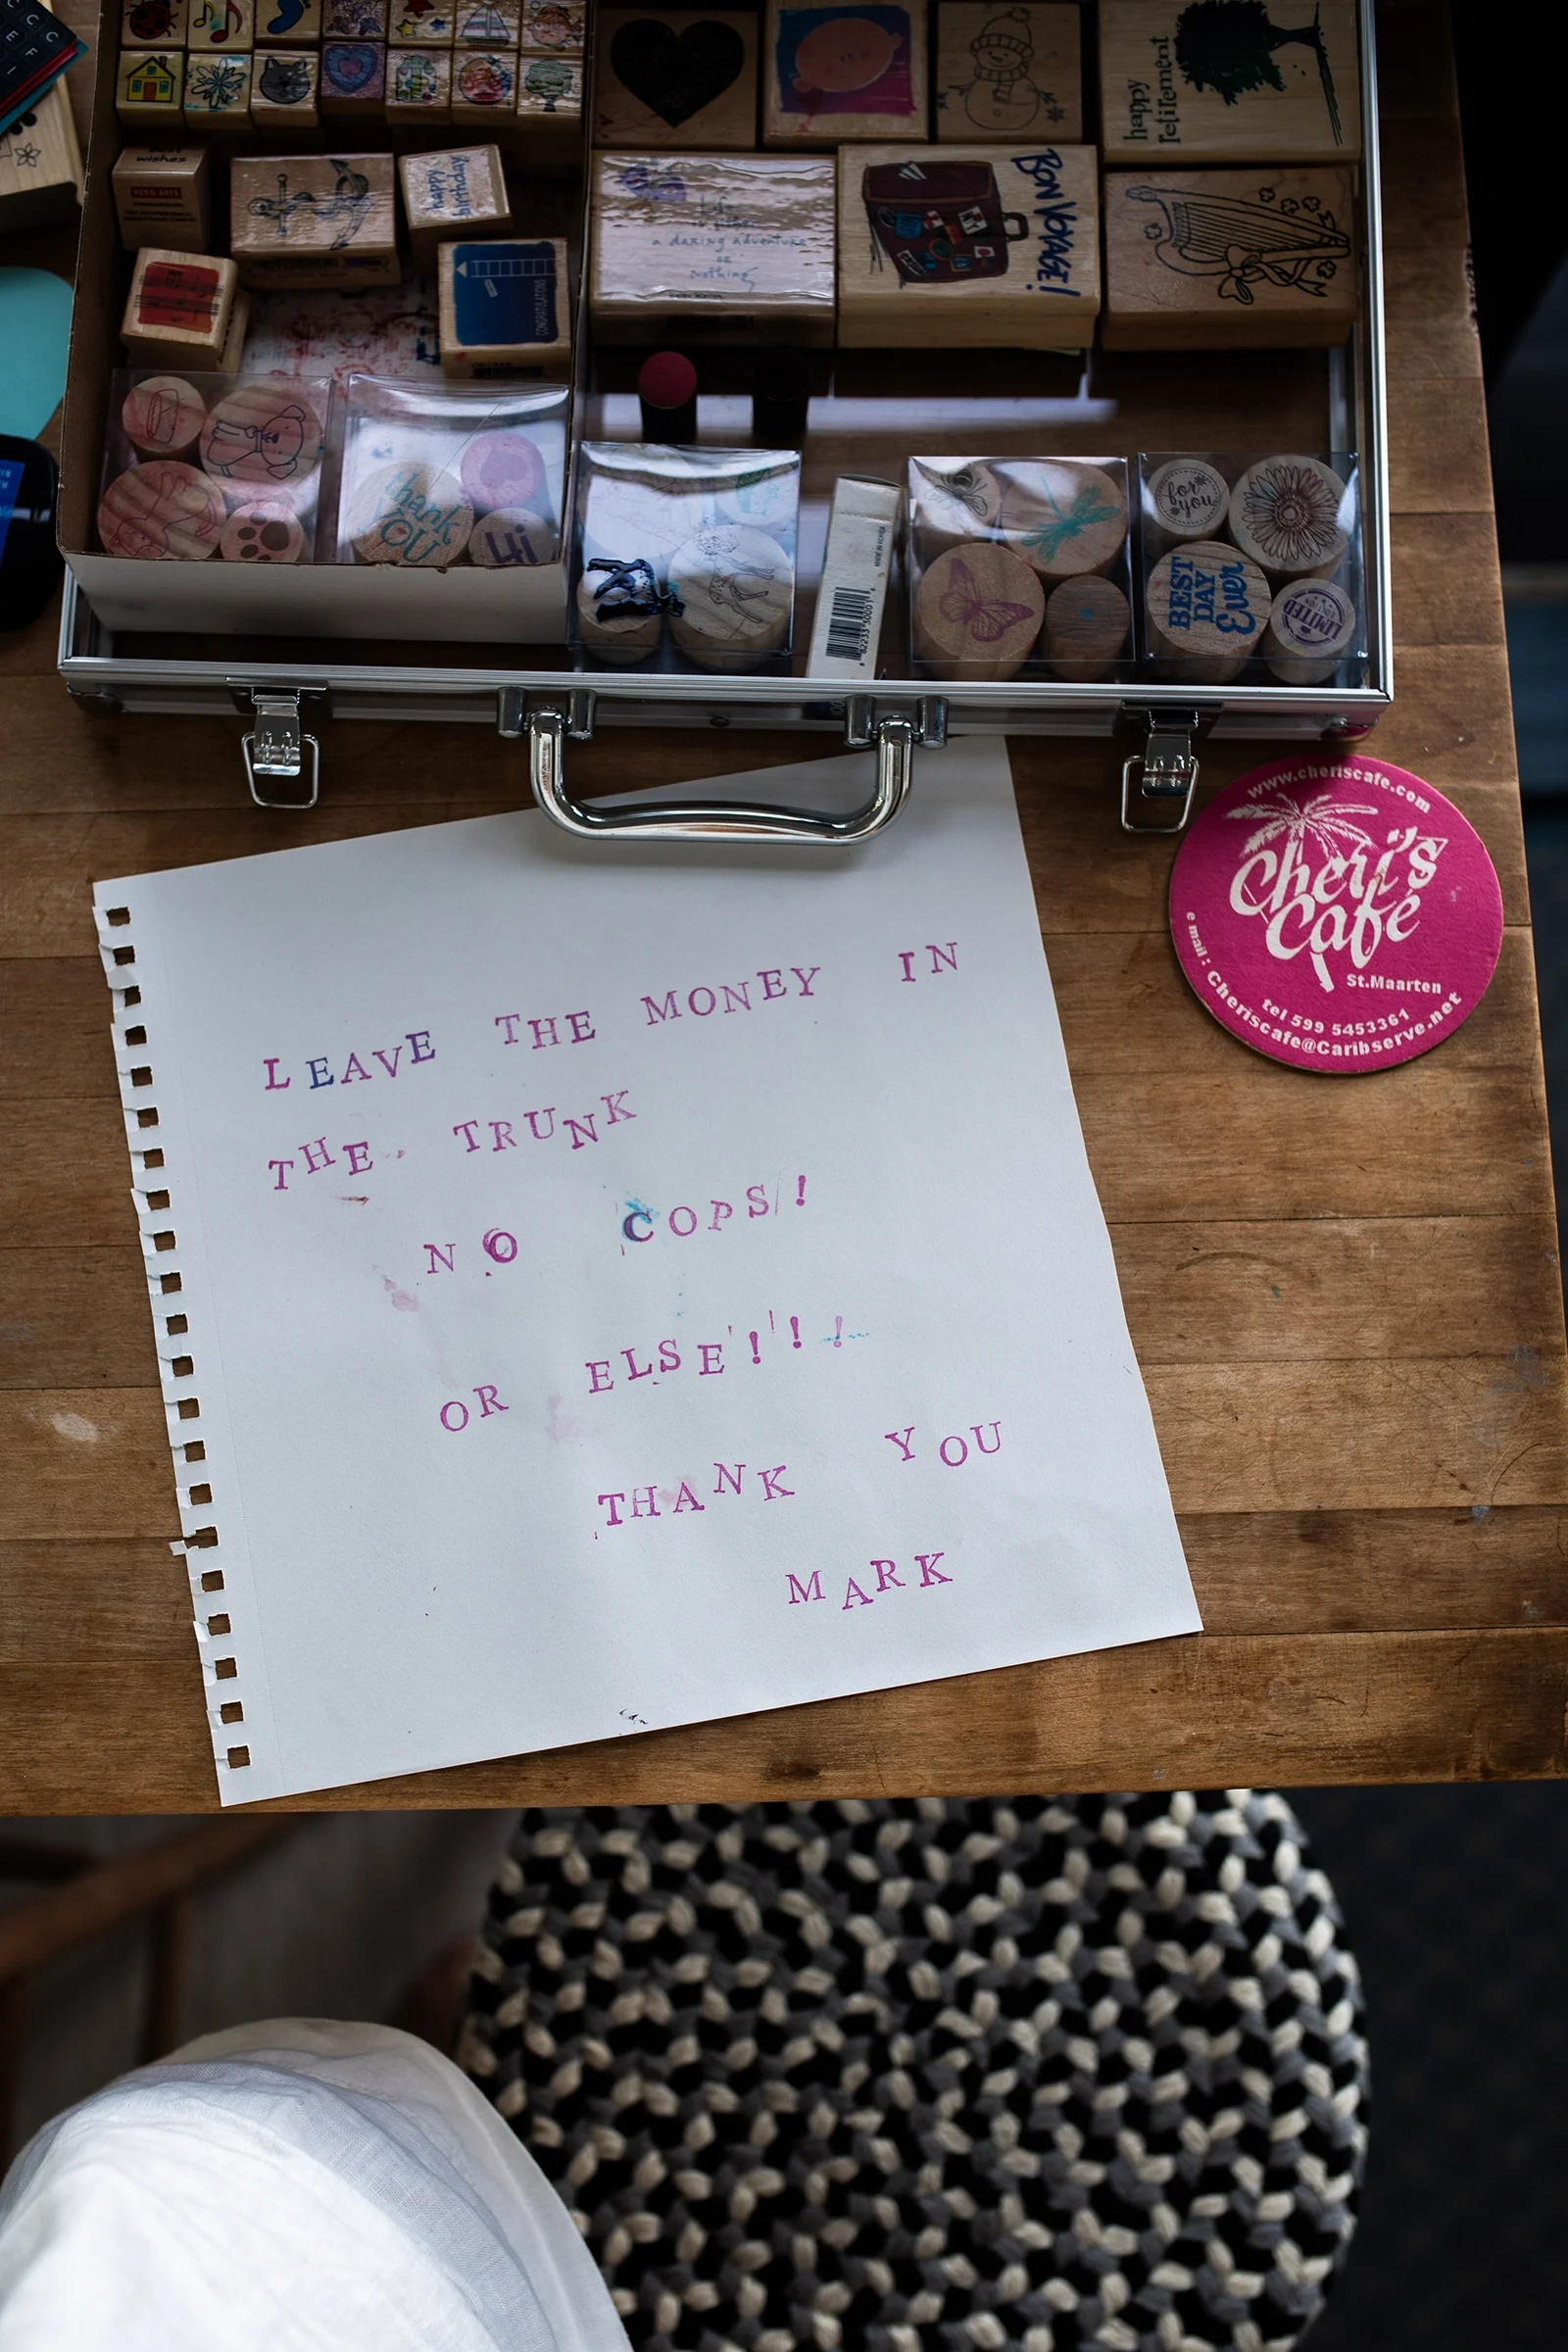 happy
retirement
best
wishes
happy
birthday
a daring adventure
or
nothing
BON VOYAGE!
CONGRATULATIONS
thank
YOU
Hi
MADE IN KOREA
for
you
BEST
DAY
Ever
LIMITED
www.cheriscafe.com
Cheri's
Café
St.Maarten
tel 599 5453361
e mail : Cheriscafe@Caribserve.net
LEAVE THE MONEY IN
THE TRUNK
NO COPS!
OR ELSE!!!
THANK YOU
MARK